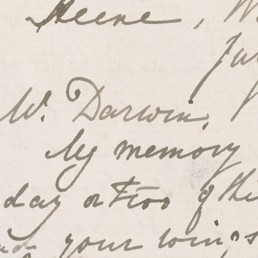 Heene, W
Ju
Mr. Darwin,
My memory
day or two of thi
your wings